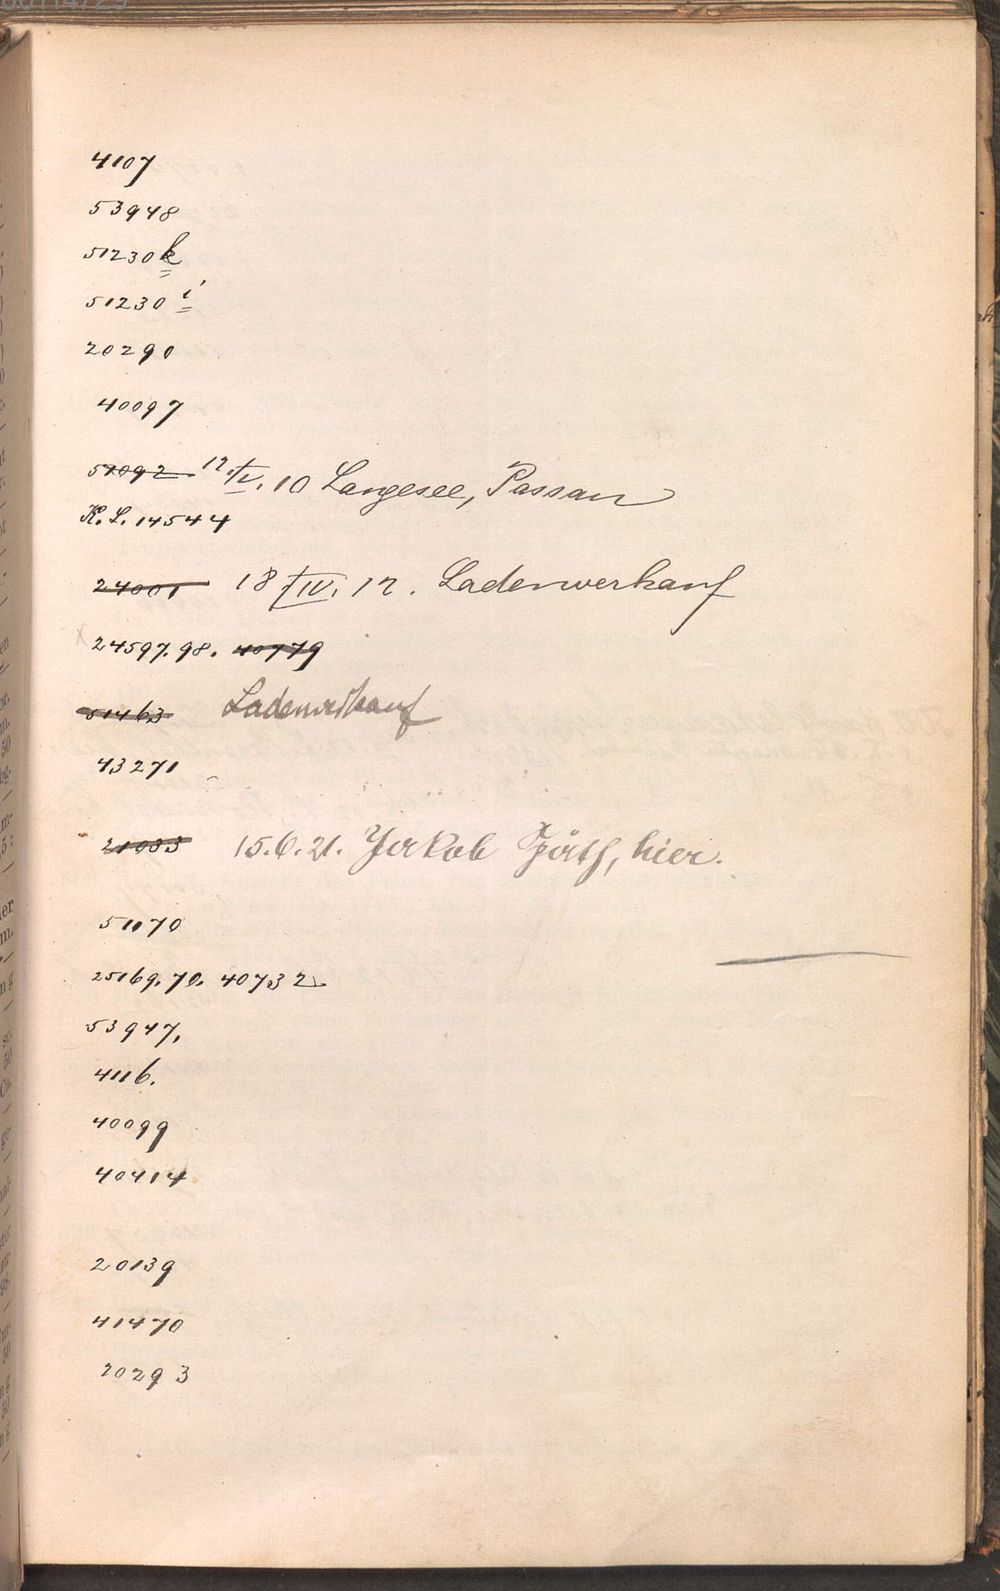 4107
53948
51230 k
51230 i
20290
40097
51092 12./V. 10 Langesee, Passau
K. L. 14544
24001 18/IV. 12. Ladenverkauf
24597. 98. 40779
51463 Ladenverkauf
43271
21033 15.6.21. Jakob hier.
51170
25169. 70. 40732
53947,
4116.
40099
40414
20139
41470
20293